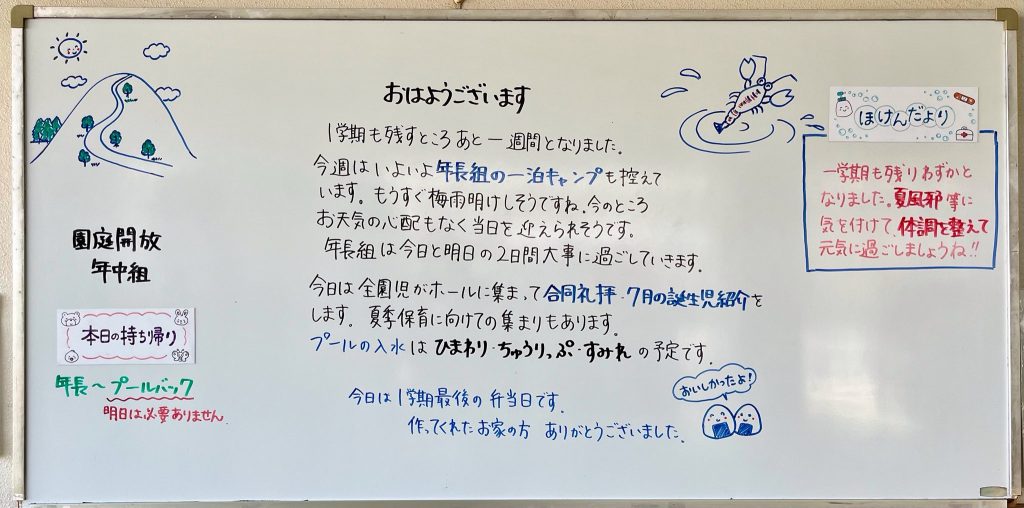 おはようございます
1学期も残すところあと一週間となりました。
今週はいよいよ年長組の一泊キャンプも控えて
います。もうすぐ梅雨明けしそうですね。今のところ
お天気の心配もなく当日を迎えられそうです。
年長組は今日と明日の2日間大事に過ごしていきます。
今日は全園児がホールに集まって合同礼拝・7月の誕生児紹介を
します。夏季保育に向けての集まりもあります。
プールの入水はひまわり・ちゅうりっぷ・すみれの予定です。
今日は1学期最後の弁当日です。
作ってくれたお家の方 ありがとうございました。
おいしかったよ!
園庭開放
年中組
本日の持ち帰り
年長〜プールバック
明日は必要ありません
ほけんだより
一学期も残りわずかと
なりました。夏風邪等に
気を付けて、体調を整えて
元気に過ごしましょうね!!